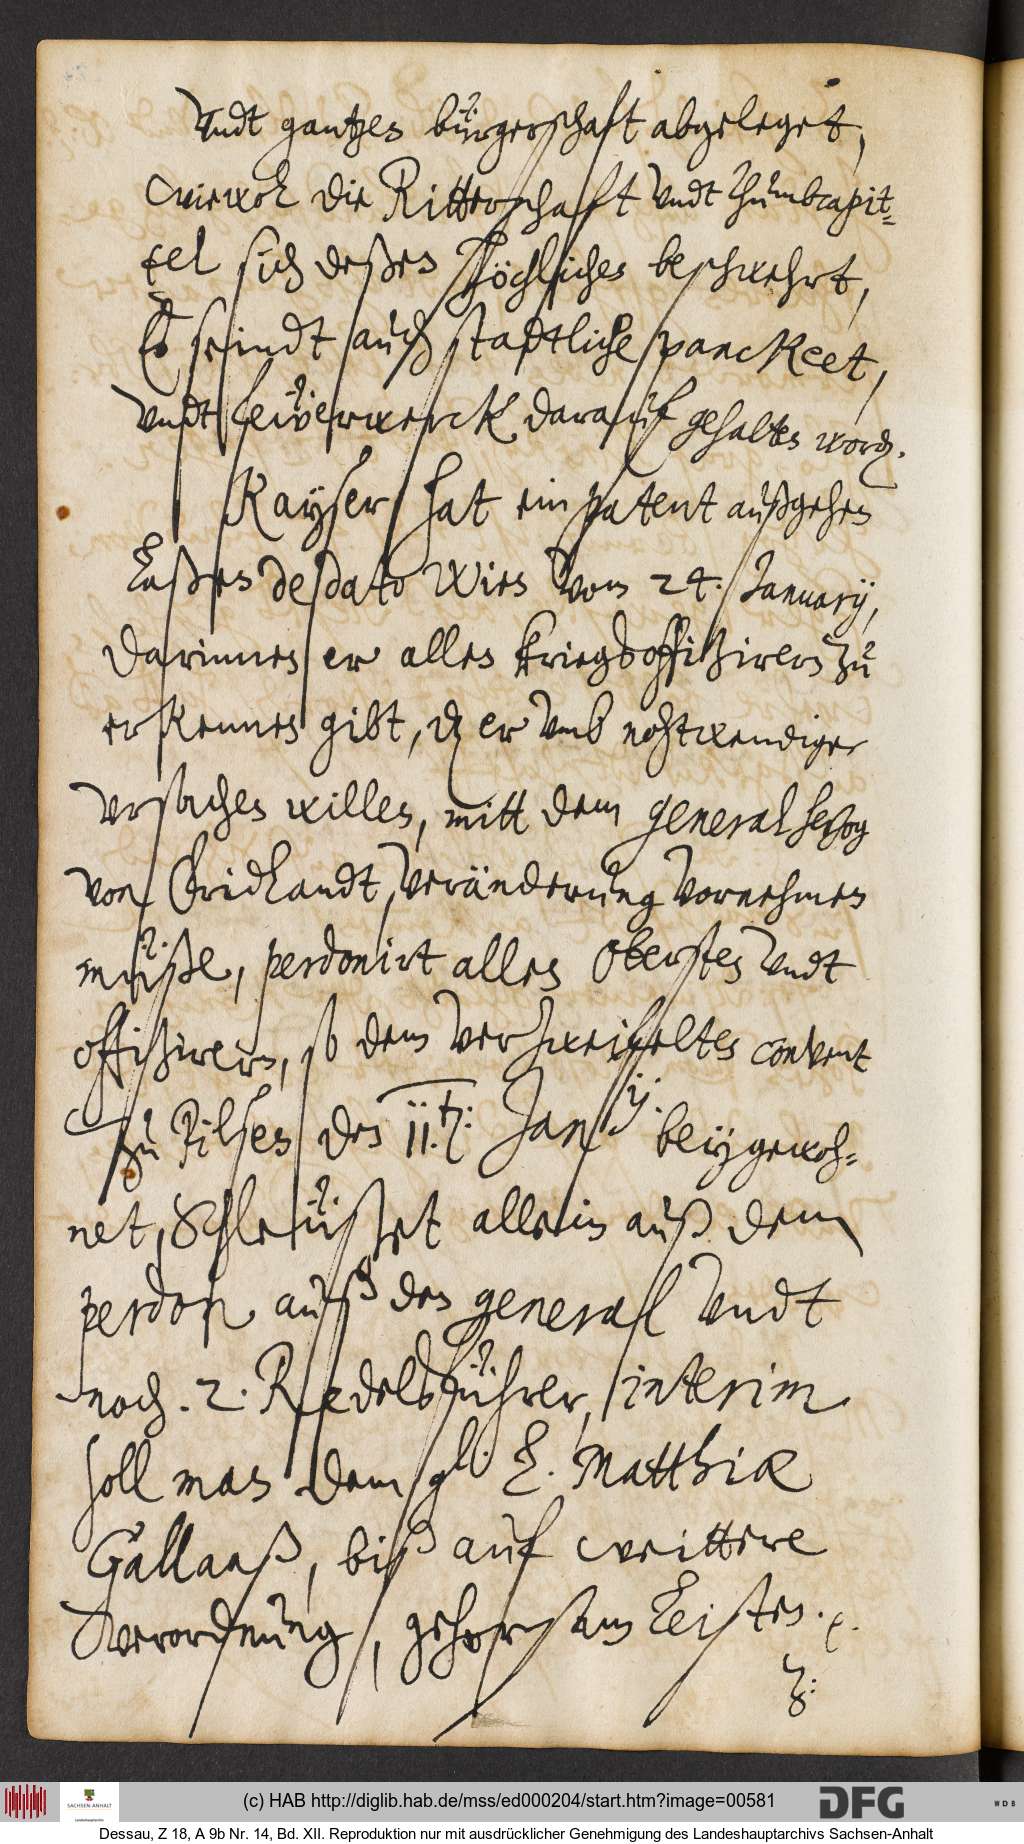 Vndt gantzen bürgerschaft abgeleget,
wiewol die Ritterschafft Vndt Thumbcapit-
tel sich deßen höchlichen beschwehrt,
Es seindt auch stadtliche panckeet,
Vndt feüerwerck darauf gehalten word.
Kayser hat ein patent außgehen
Laßen de dato Wien Vom 24. January,
darinnen er allen kriegsoffitzirern zu
erkennen gibt, dz er Vmb nohtwendiger
Vrsachen willen, mitt dem general herzog
von Fridlandt, Veränderung Vornehmen
müße, perdonirt allen Obersten Vndt
offitzirern, so dem Verzweifelten convent
zu Pilsen den 11.t: Januarij: beygewoh-
net, Schleüßet allein auß dem
perdon auß den general Vndt
noch. 2. Redelsführer, interim
soll man dem gl: L. Matthiæ
Gallaaß, biß auf weittere
Verordnung, gehorsam Leisten. p.
(c) HAB http://diglib.hab.de/mss/ed000204/start.htm?image=00581
SACHSEN-ANHALT
Landeshauptarchiv
DFG
WDB
Dessau, Z 18, A 9b Nr. 14, Bd. XII. Reproduktion nur mit ausdrücklicher Genehmigung des Landeshauptarchivs Sachsen-Anhalt